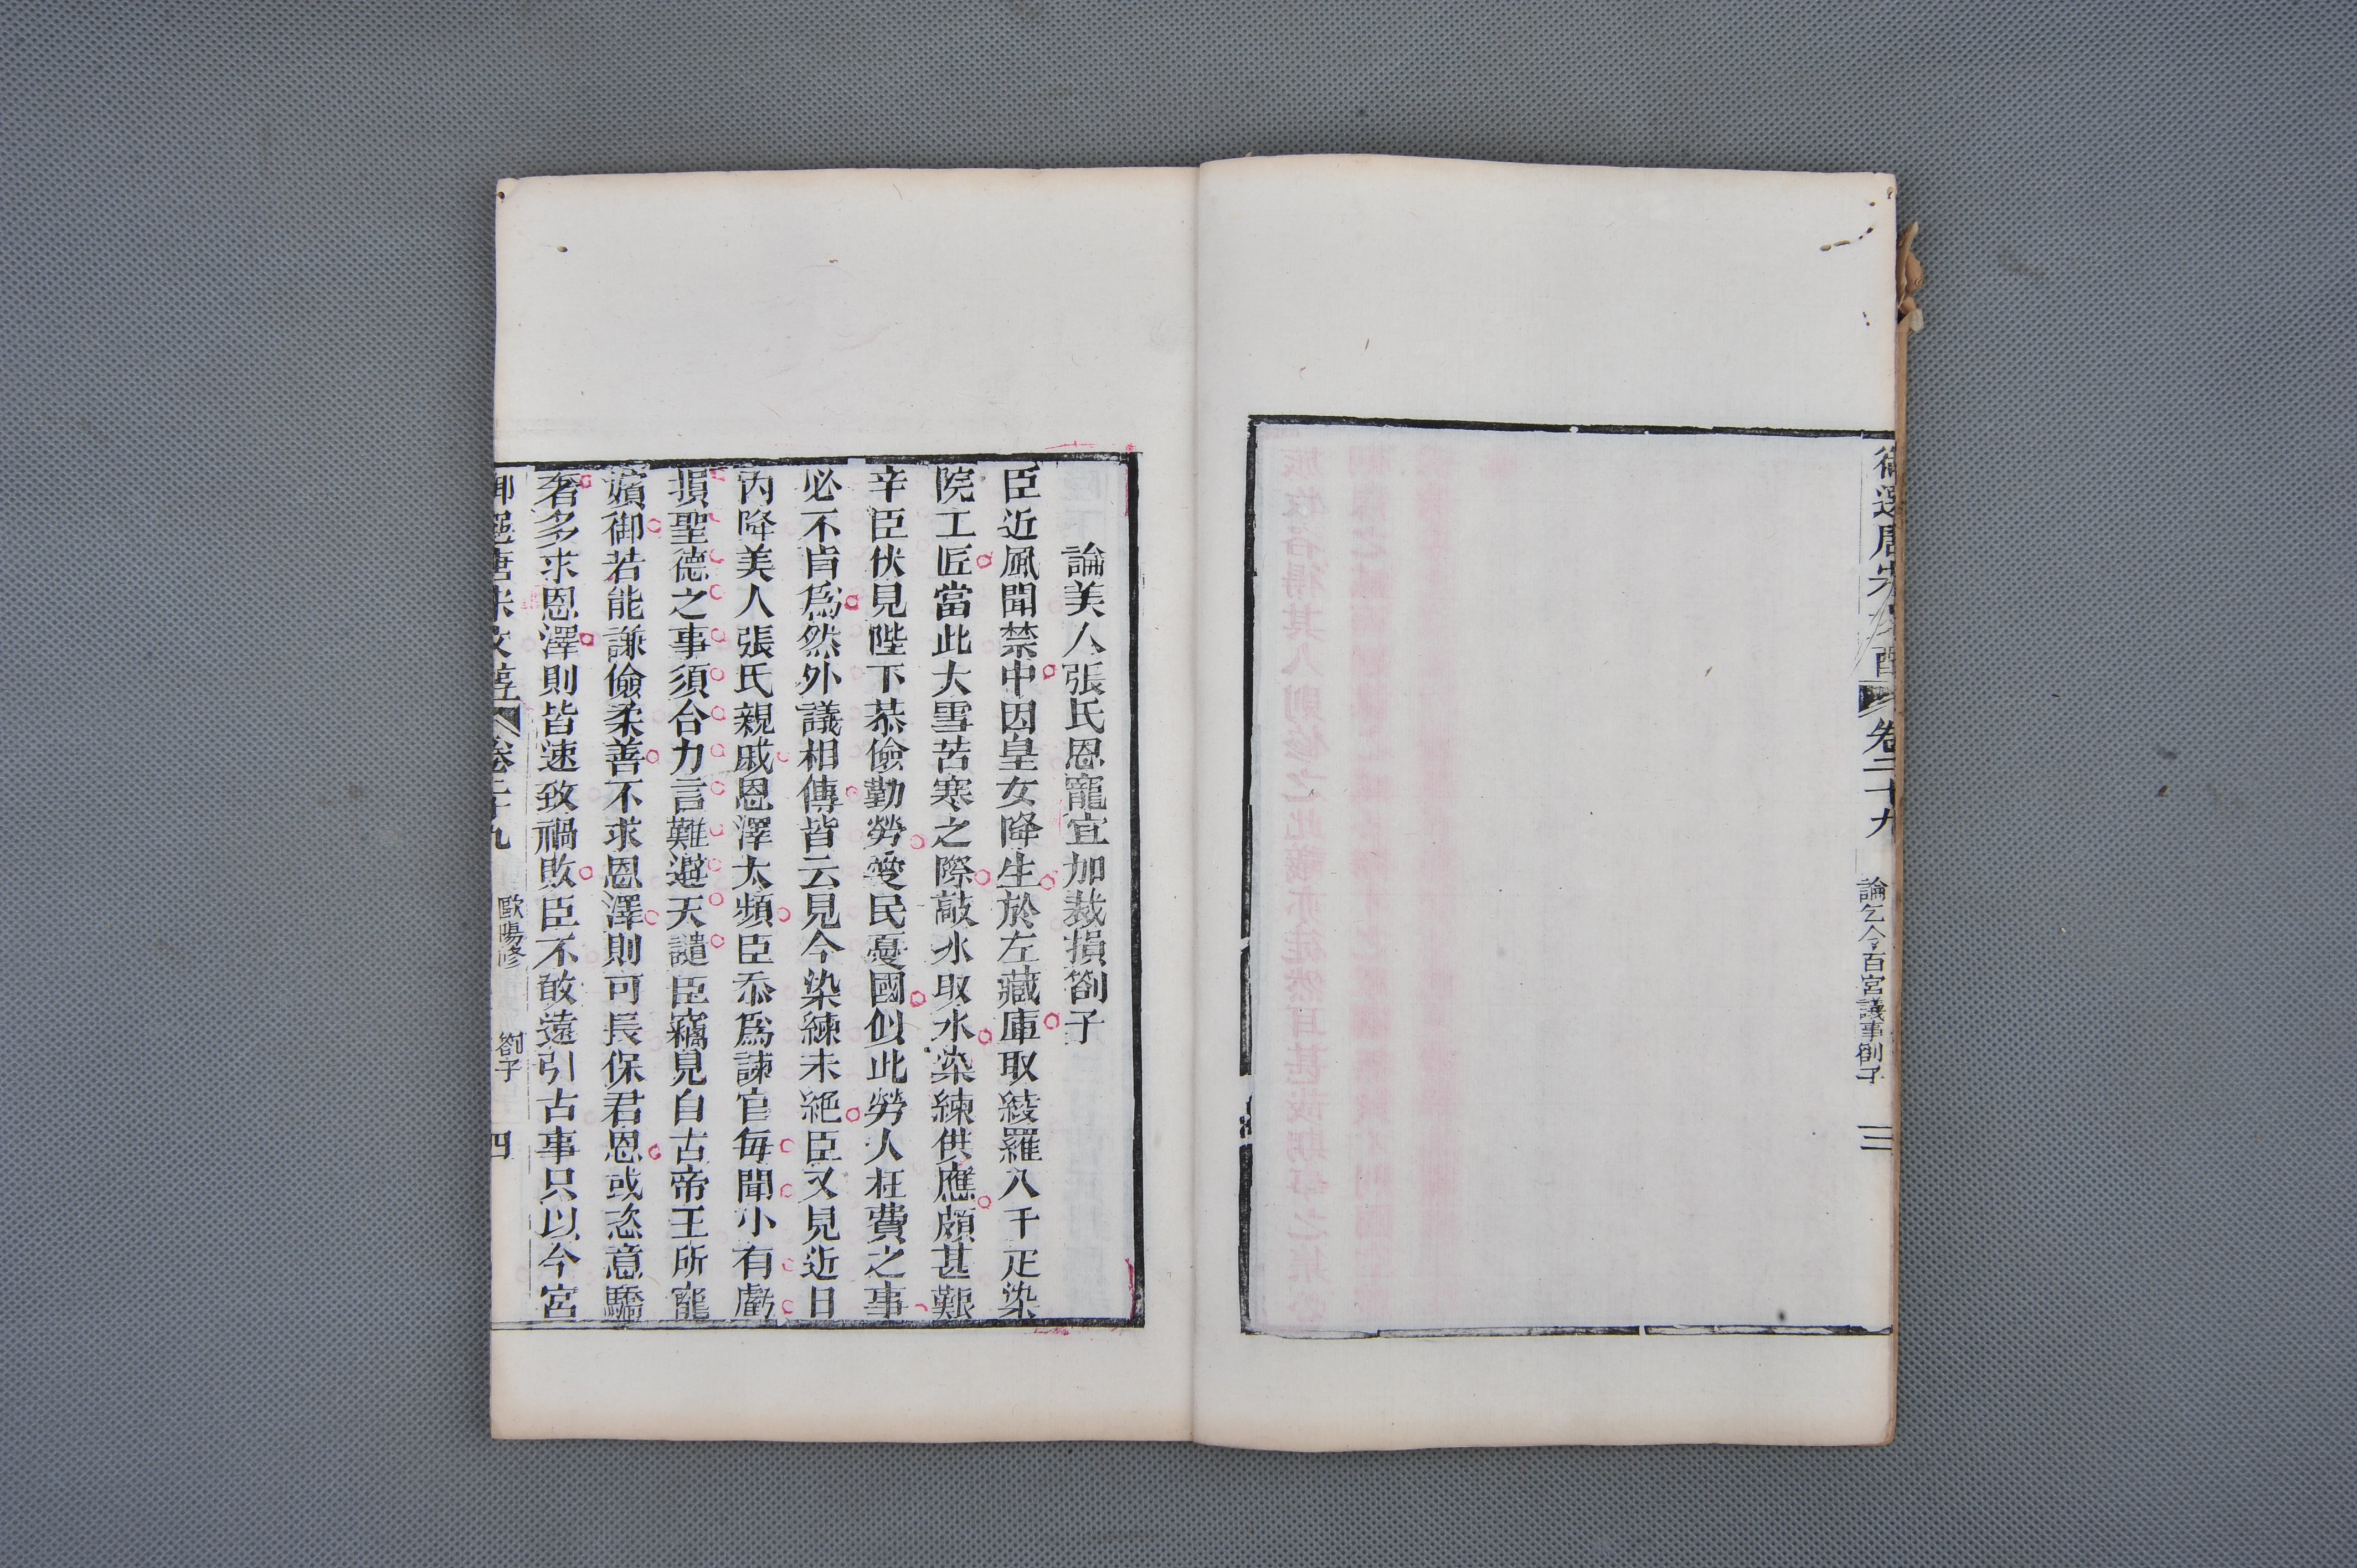 御選唐宋文醇 卷二十九 論乞令百官議事劄子 三
論美人張氏恩寵宜加裁損劄子
臣近風聞禁中因皇女降生於左藏庫取綾羅八千疋染
院工匠當此大雪苦寒之際敲氷取水染練供應頗甚艱
辛臣伏見陛下恭儉勤勞愛民憂國似此勞人枉費之事
必不肯爲然外議相傳皆云見今染練未絕臣又見近日
内降美人張氏親戚恩澤太頻臣忝爲諫官每聞小有虧
損聖德之事須合力言難避天譴臣竊見自古帝王所寵
嬪御若能謙儉柔善不求恩澤則可長保君恩或恣意驕
奢多求恩澤則皆速致禍敗臣不敢遠引古事只以今宮
御選唐宋文醇 卷二十九 歐陽修 劄子 四